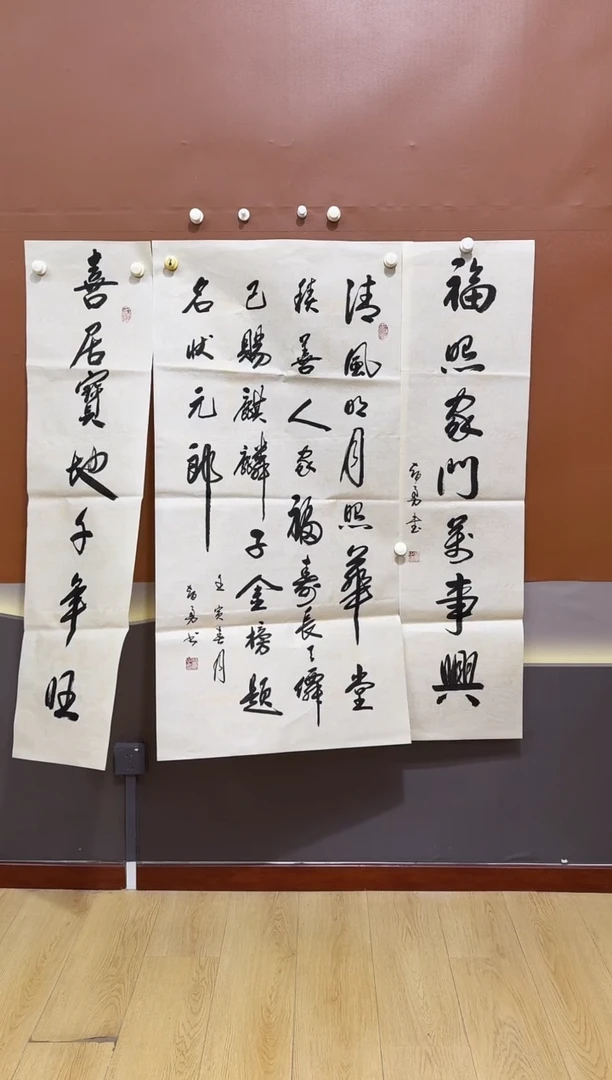 福照家門萬事興
勇書
清風明月照華堂
積善人家福壽長天僊
已賜麒麟子金榜題
名狀元郎
壬寅春月
勇書
喜居寶地千年旺